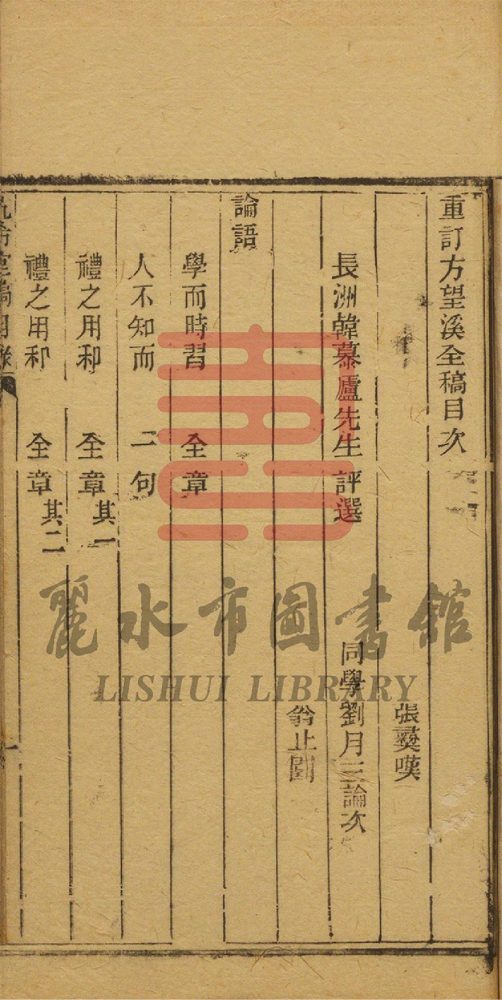 重訂方望溪全稿目次
張䕫嘆
長洲韓慕廬先生評選
同學劉月三論次
翁止園
論語
學而時習 全章
人不知而 二句
禮之用和 全章 其一
禮之用和 全章 其二
麗水市圖書館
LISHUI LIBRARY